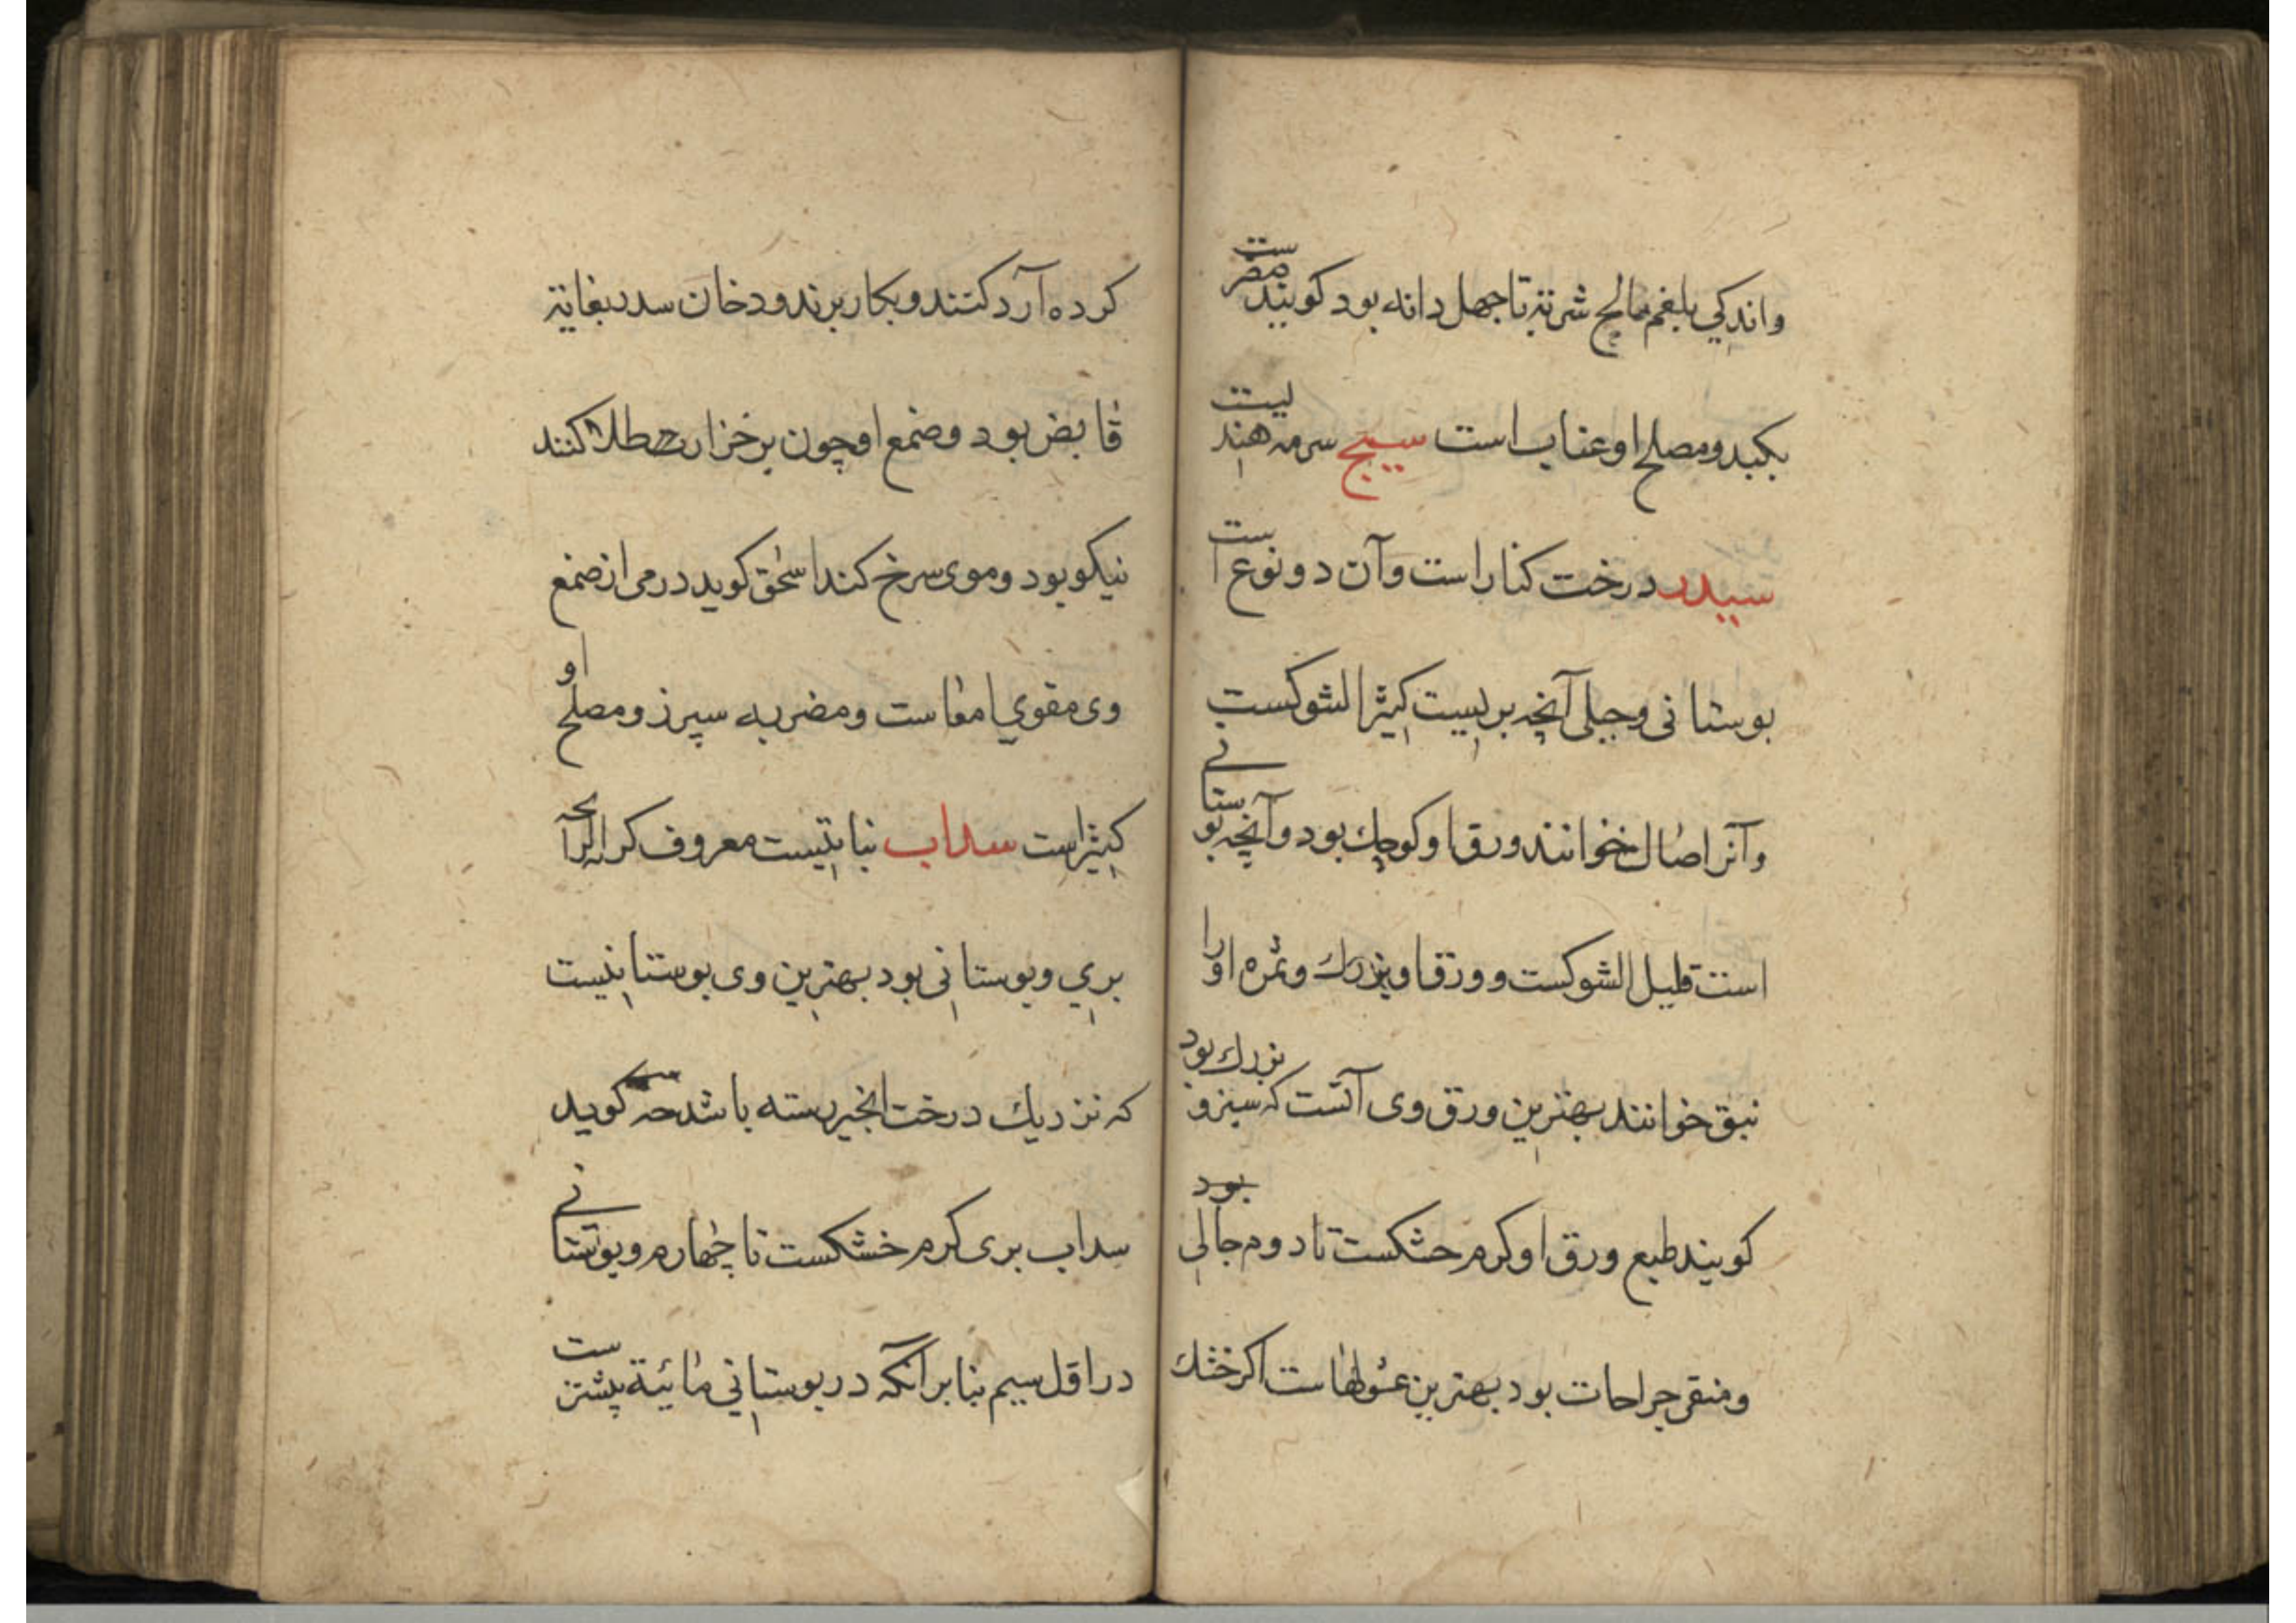 واندکي بلغم مالح شربة تا چهل دانه بود کویند مضرست
بکبد و مصلح او عناب است سبج سرمه هندیست
سدر درخت کنار است و آن دو نوع است
بوستانی و جبلی آنچه بریست کثیر الشوکست
و آنرا ضال خوانند ورق او کوچك بود و آنچه بوستانی
است قلیل الشوکست و ورق او بزرك و ثمره او را
نبق خوانند بهترین ورق وی آنست که سبز و بزرك بود
کویند طبع ورق او کرم خشکست تا دوم جالی بود
و منقی جراحات بود بهترین غسولهاست اکر خشك
کرده آرد کنند و بکار برند و دخان سدر بغایة
قابض بود و صمغ او چون بر خزاز طلا کنند
نیکو بود و موی سرخ کند اسحق کوید درمی از صمغ
وی مقوي امعاست و مضر به سپرز و مصلح او
کثیر است سداب نباتیست معروف کرایه الرایحه
بري و بوستانی بود بهترین وی بوستانیست
که نزدیك درخت انجیر رسته باشد کوید
سداب بری کرم خشکست تا چهارم و بوستانی
در اول سیم بنا بر آنکه در بوستاني مائیة بیشترست